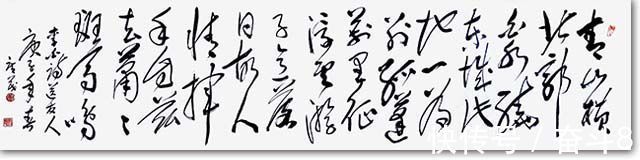 青山横
北郭
白水绕
东城此
地一为
别孤蓬
万里征
浮云游
子意落
日故人
情挥
手自兹
去萧萧
班马鸣
李白诗送友人
庚子年春
快传号 / 奋斗8